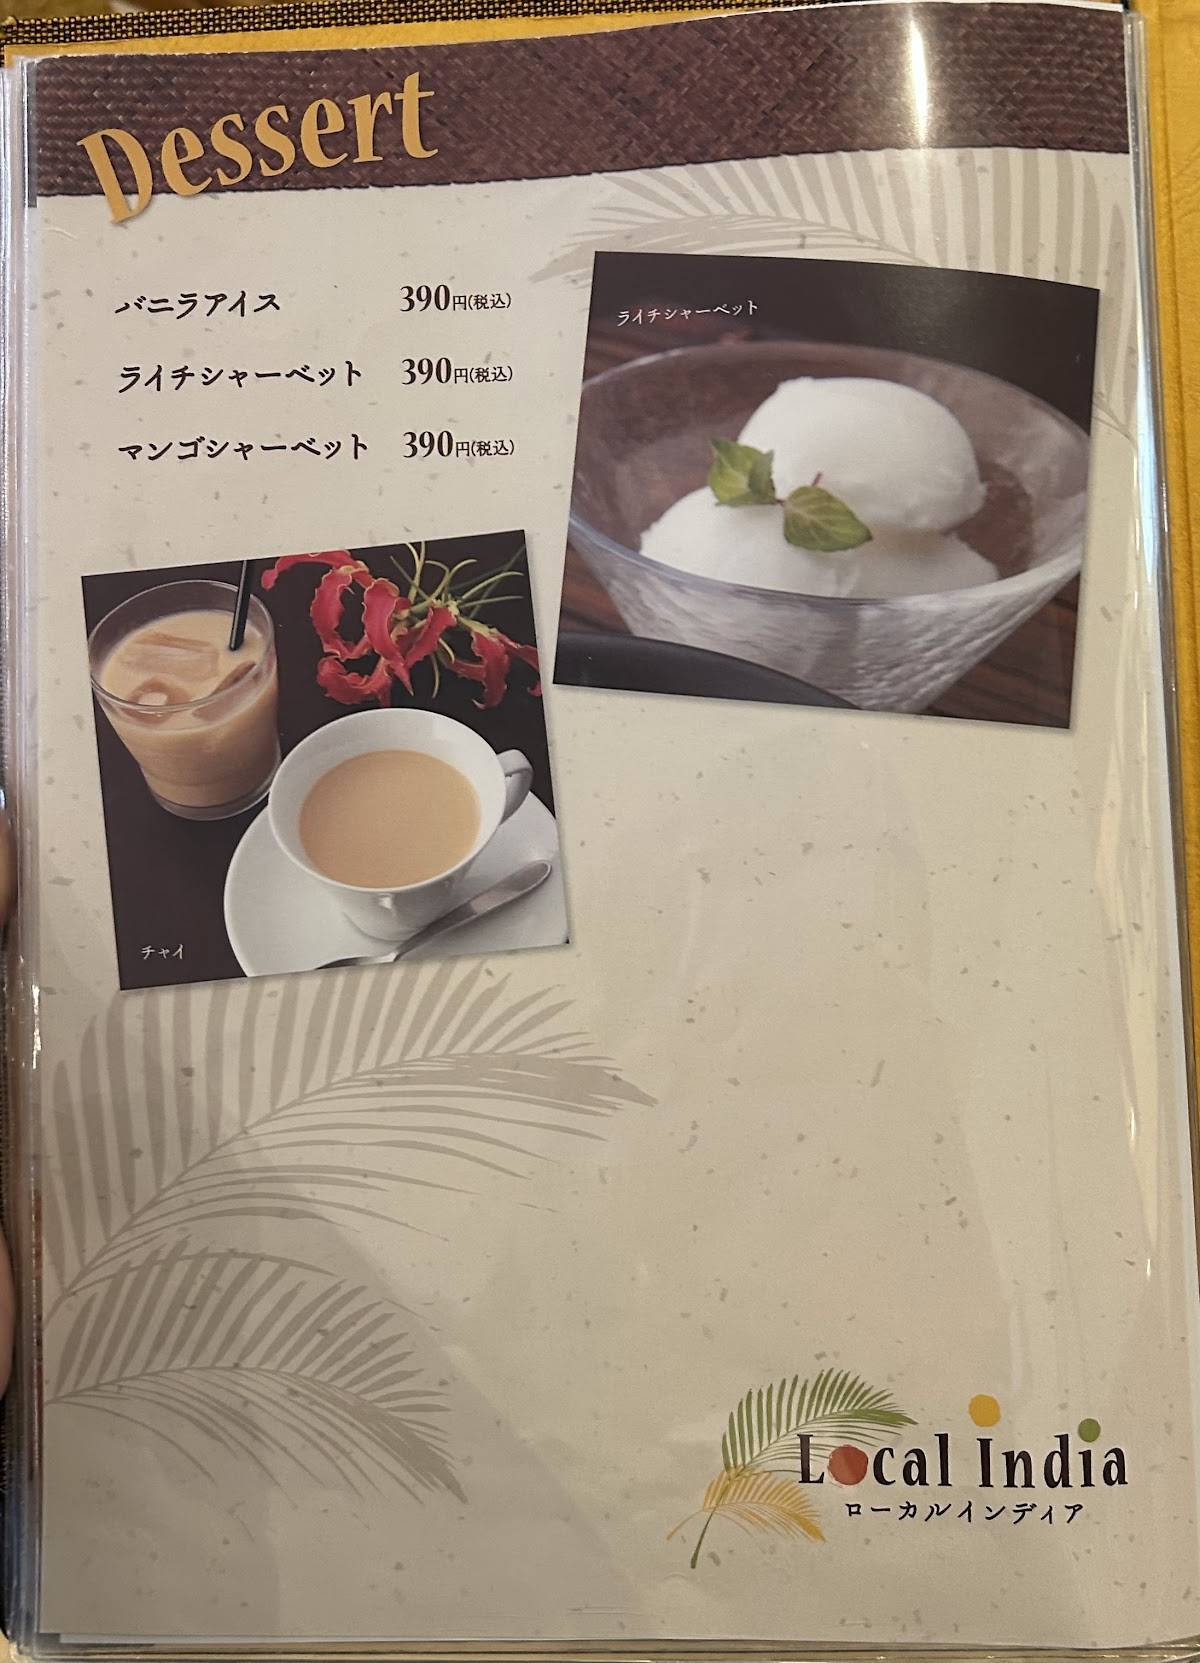 Dessert
バニラアイス 390円(税込)
ライチシャーベット 390円(税込)
マンゴシャーベット 390円(税込)
ライチシャーベット
チャイ
Local India
ローカルインディア